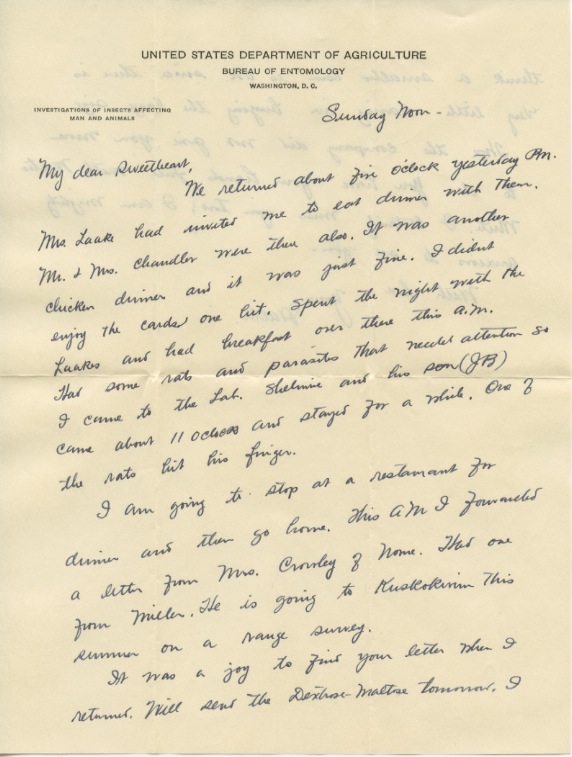 UNITED STATES DEPARTMENT OF AGRICULTURE
BUREAU OF ENTOMOLOGY
WASHINGTON, D. C.
INVESTIGATIONS OF INSECTS AFFECTING
MAN AND ANIMALS
Sunday Noon -
My dear Sweetheart,
We returned about five oclock yesterday P.M.
Mrs Laake had invited me to eat dinner with them.
Mr. & Mrs. Chandler were there also. It was another
chicken dinner and it was just fine. I didnt
enjoy the cards one bit. Spent the night with the
Laakes and had breakfast over there this A.M.
Had some rats and parasites that needed attention so
I came to the Lab. and his son (JB)
came about 11 oclock and stayed for a while. One of
the rats bit his finger.
I am going to stop at a restaurant for
dinner and then go home. This AM I forwarded
a letter from Mrs. Crowley of Nome. Had one
from Miller. He is going to Kuskokwim this
summer on a range survey.
It was a joy to find your letter when I
returned. Will send the Dextrose-Maltose tomorrow. I